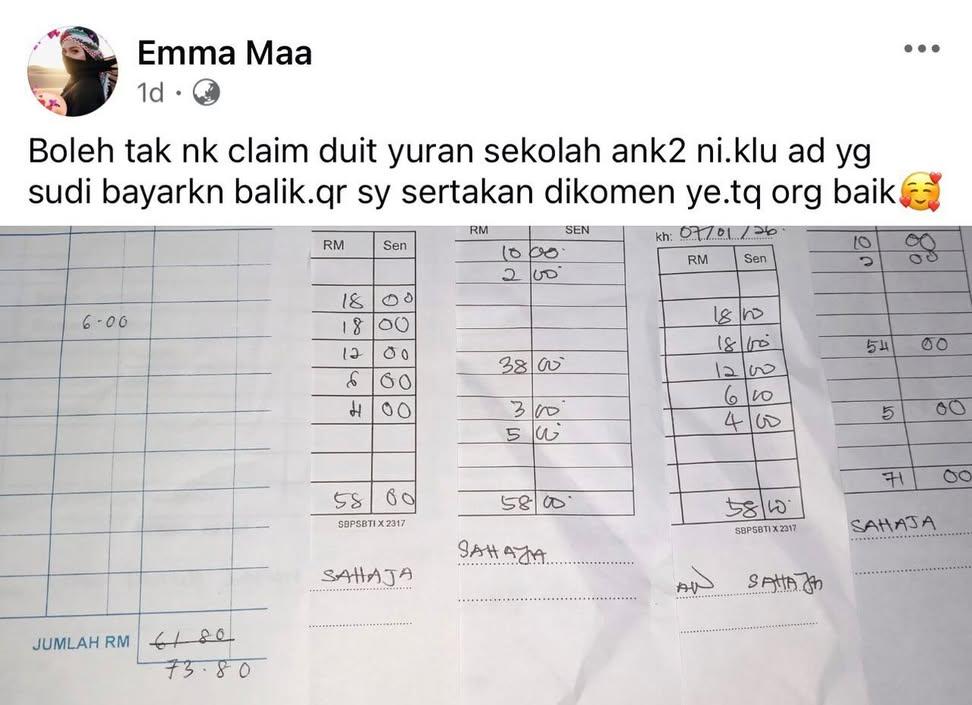 Emma Maa
1d
Boleh tak nk claim duit yuran sekolah ank2 ni.klu ad yg
sudi bayarkn balik.qr sy sertakan dikomen ye.tq org baik🥰
6-00
JUMLAH RM 61 80
73.80
RM Sen
18 00
18 00
12 00
6 00
4 00
58 00
SBPSBTI X 2317
SAHAJA
RM SEN
10 00
2 00
38 00
3 00
5 00
58 00
SAHAJA
kh: 07/01/26
RM Sen
18 00
18 00
12 00
6 00
4 00
58 00
SBPSBTI X 2317
SAHAJA
10 00
2 00
54 00
5 00
71 00
SAHAJA